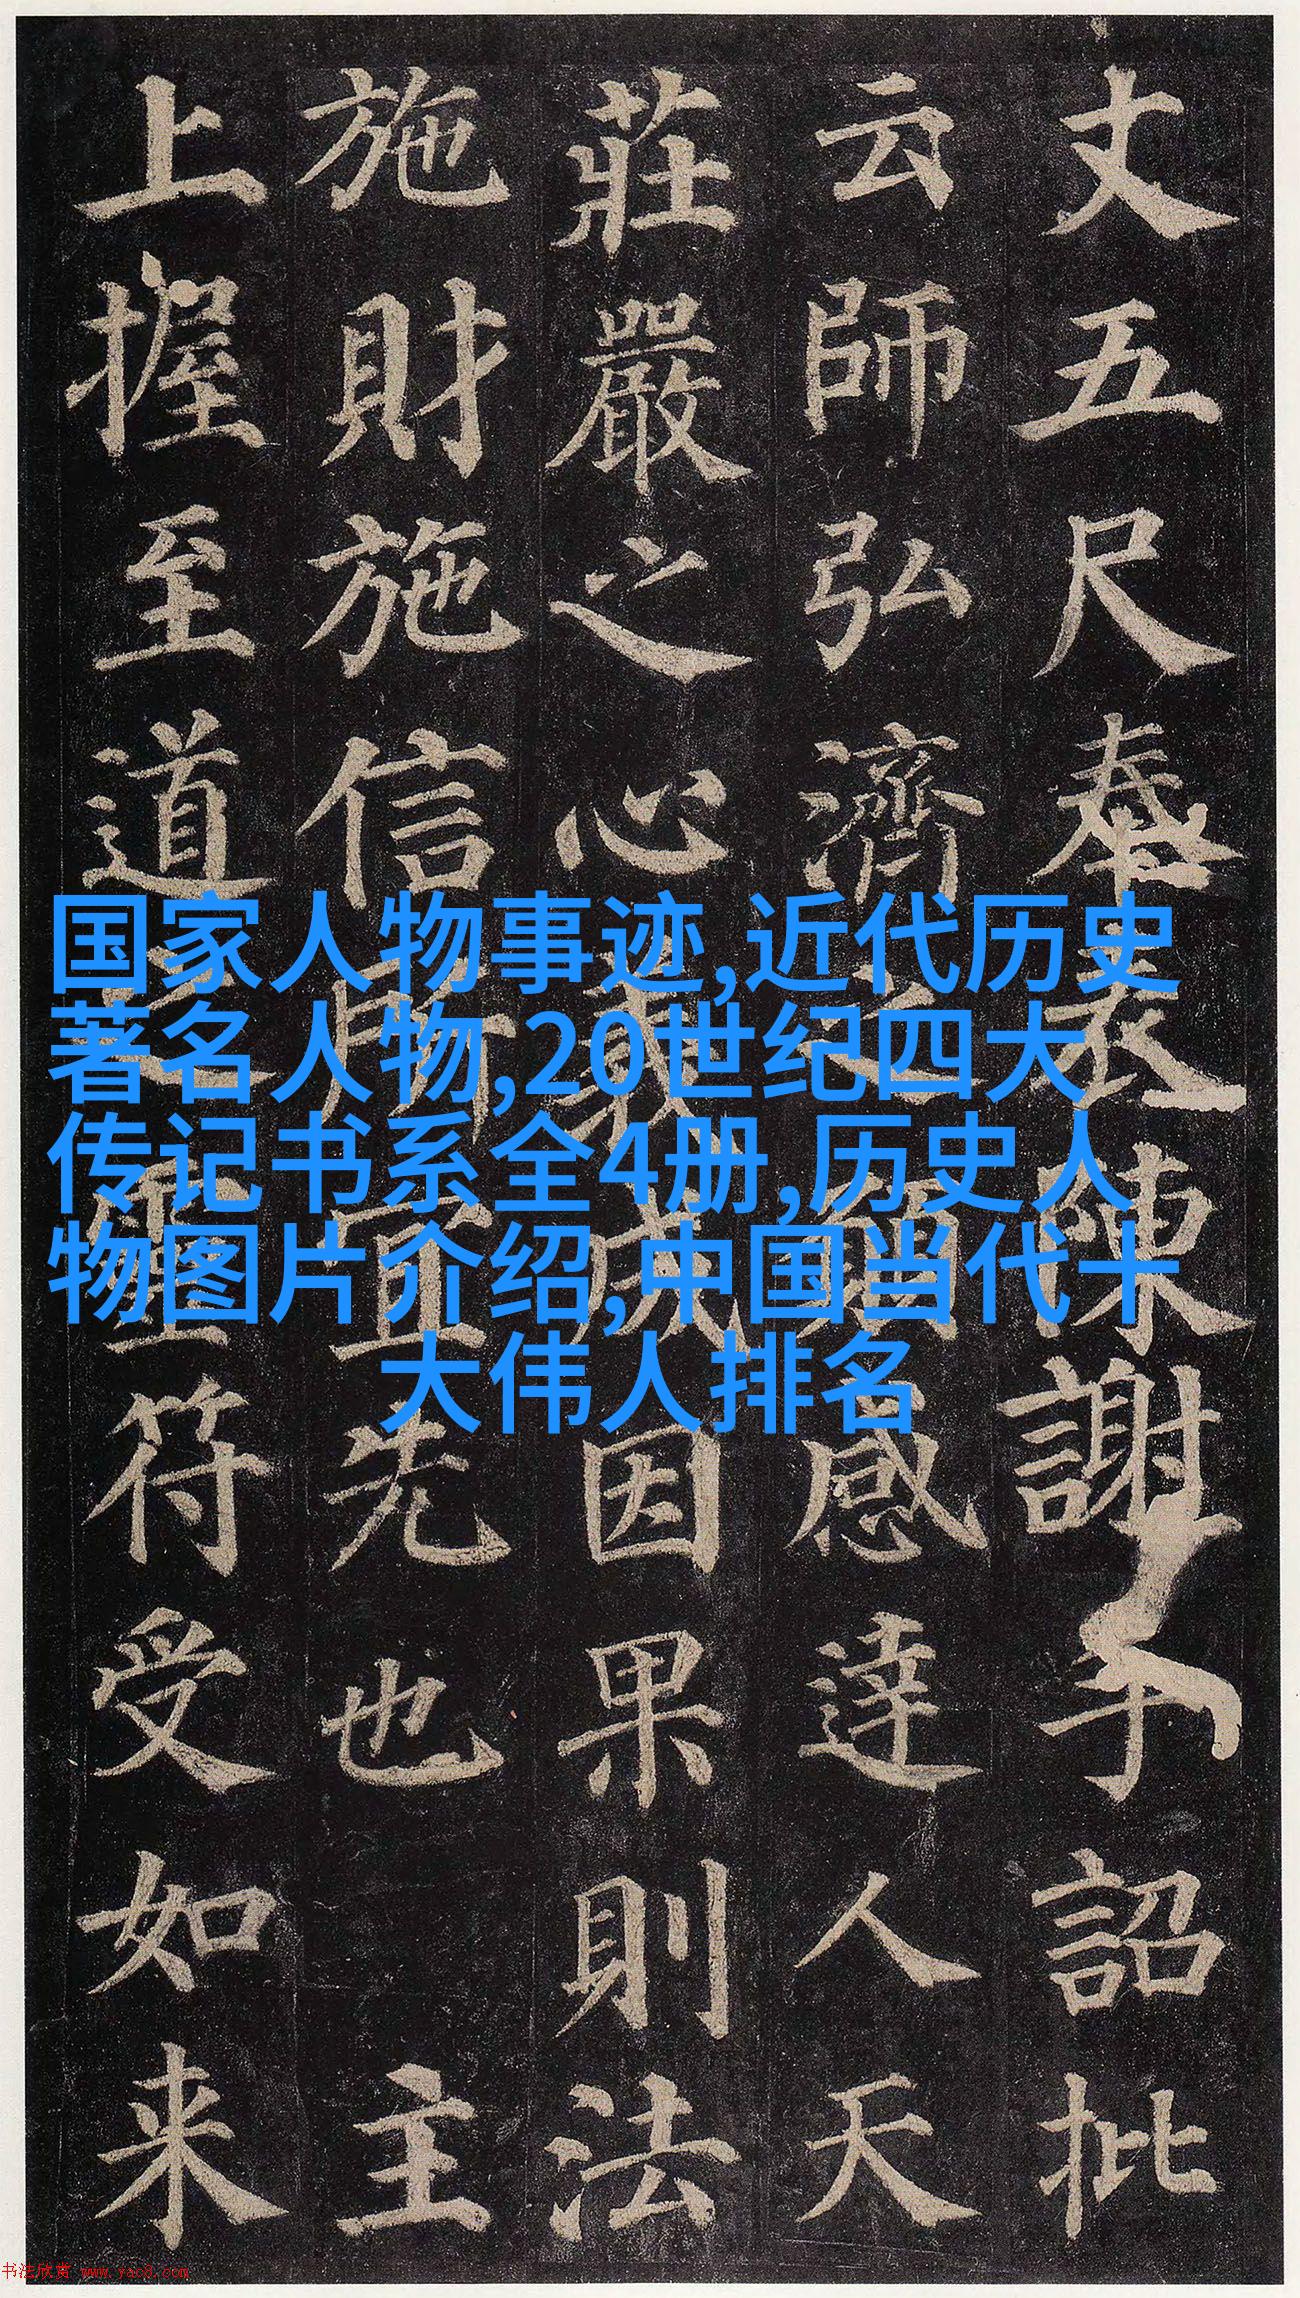 丈五尺奉表陳謝手詔批
云師弘濟之願感達人天
莊嚴之心義成因果則法
施財施信所宜先也主
上握至道之靈符受如来
国家人物事迹,近代历史
著名人物,20世纪四大
传记书系全4册,历史人
物图片介绍,中国当代十
大伟人排名
书法欣赏 www.yac8.com